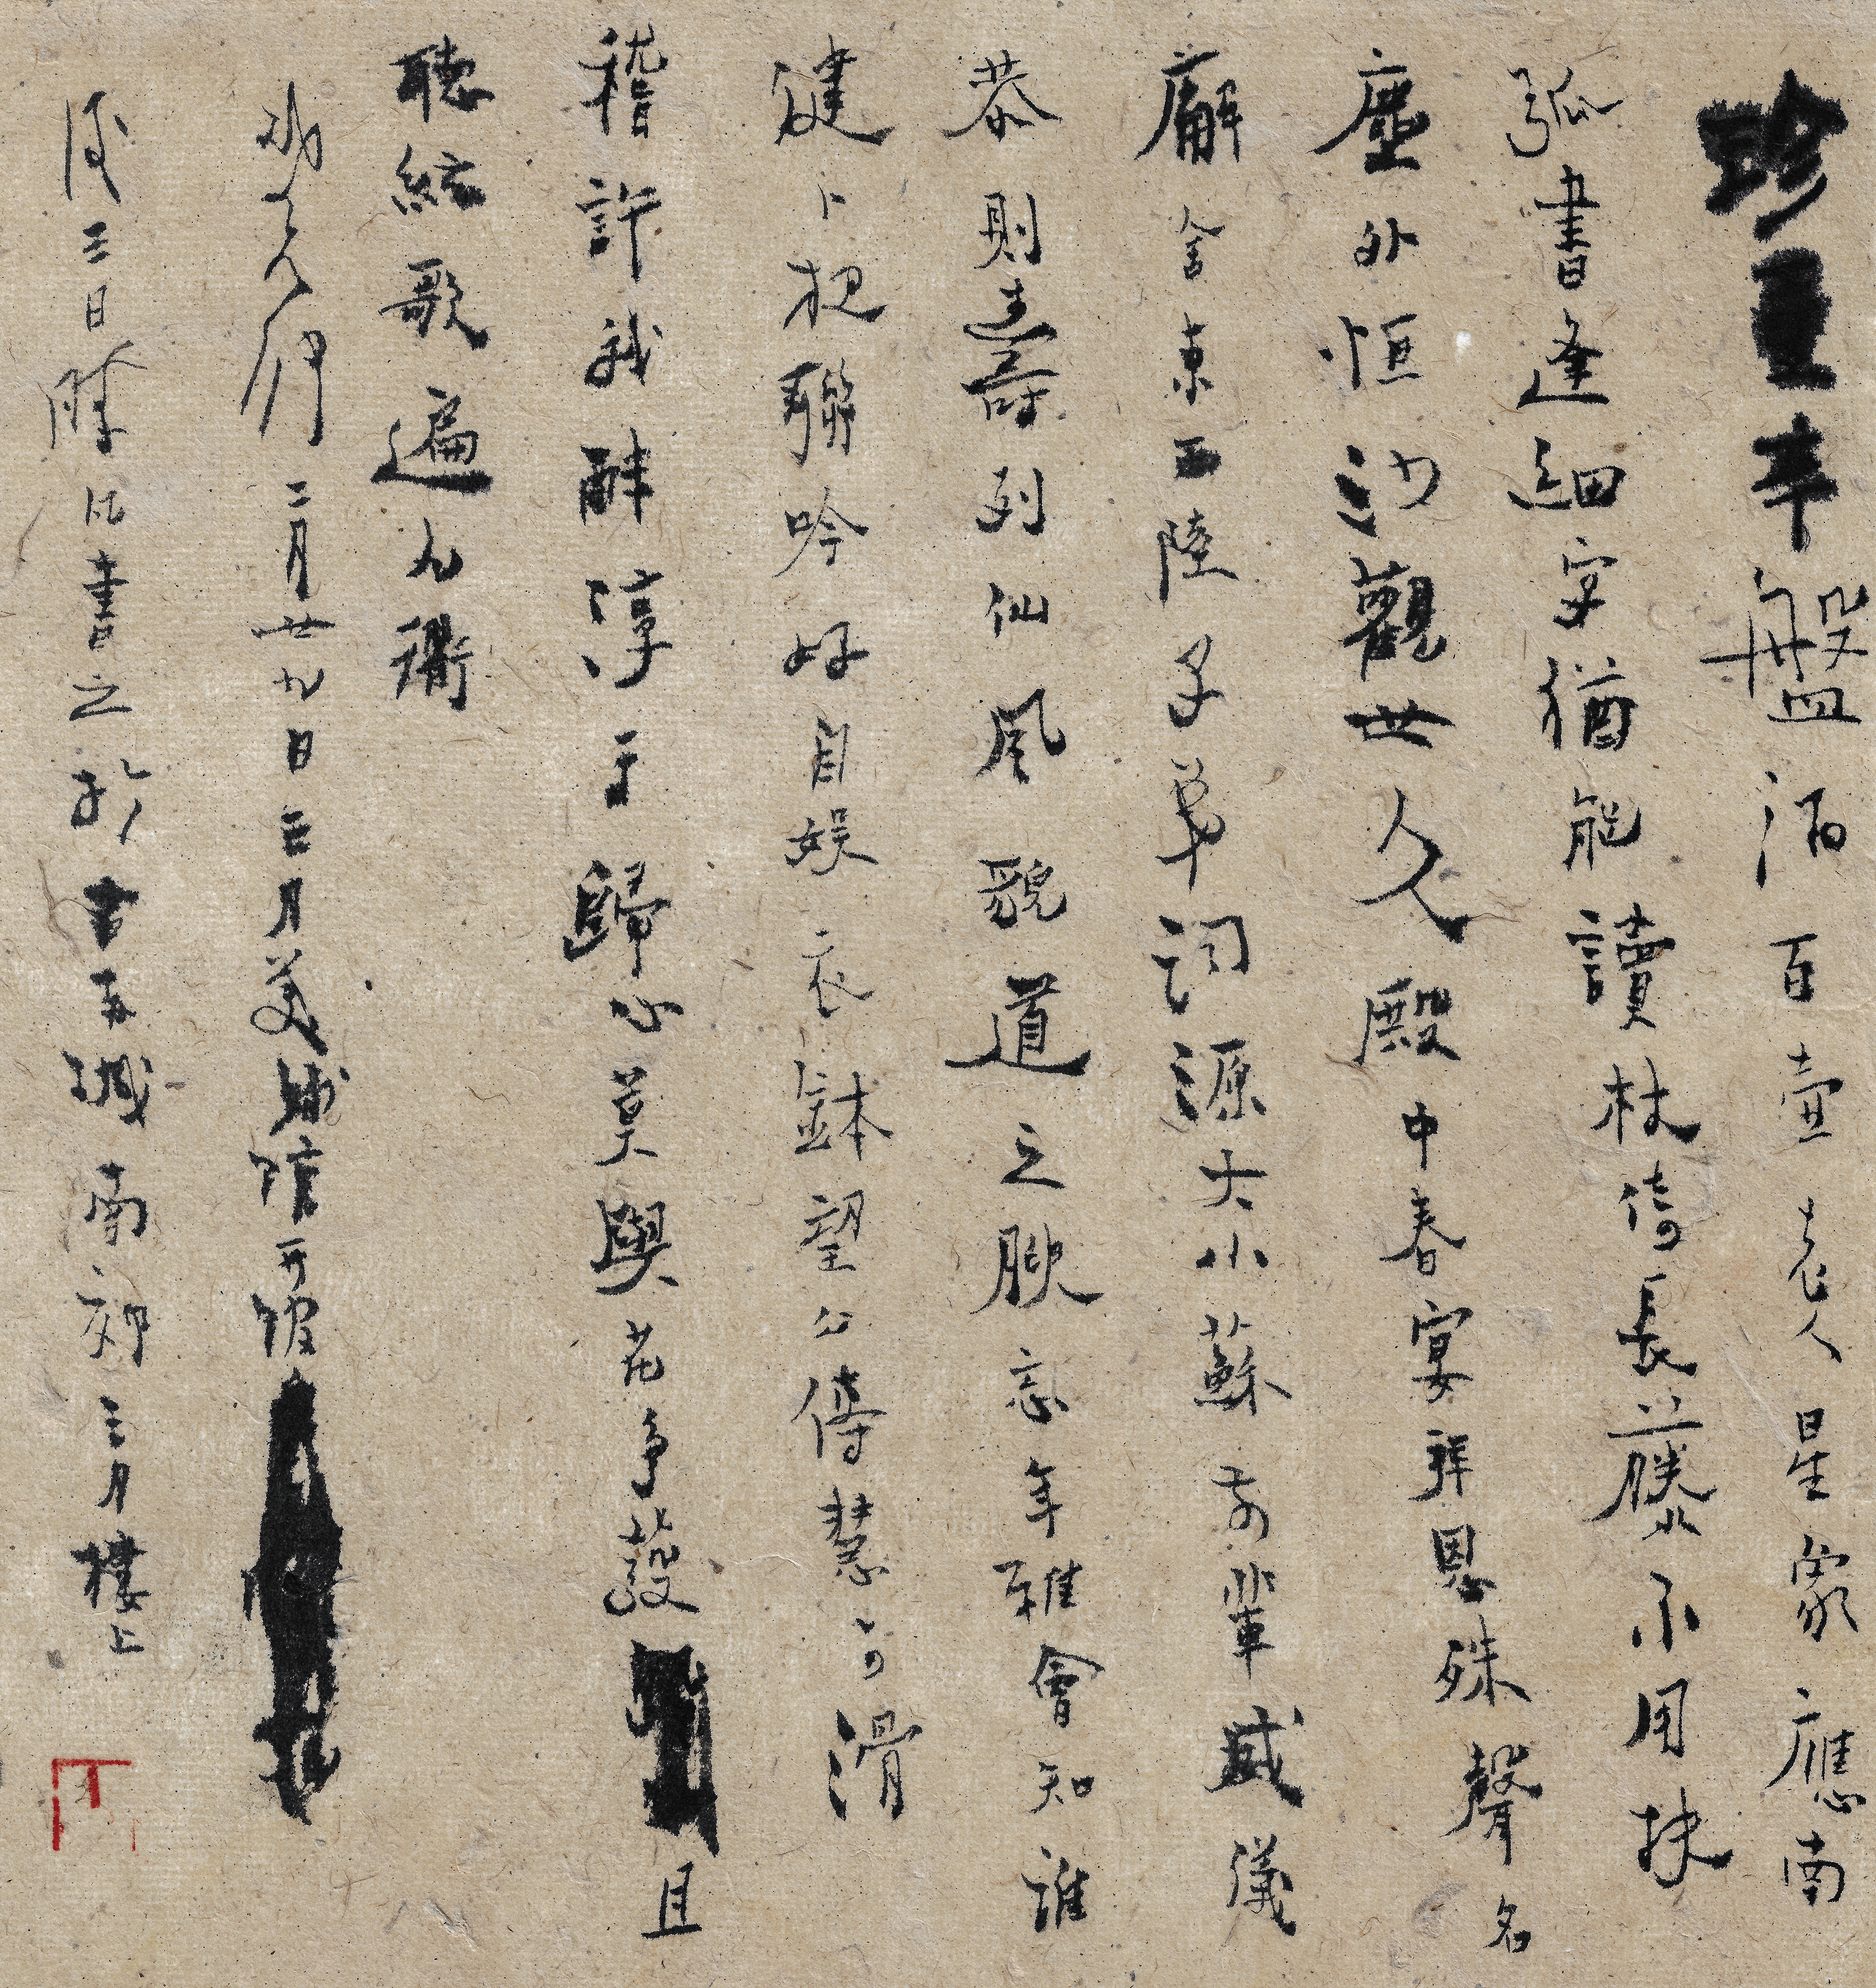 珍重辛盤酒百壺老人星象應南
弧書逢細字猶能讀杖倚長藤不用扶
塵外恒沙觀世久殿中春宴拜恩殊聲名
廨舍東西陸子弟詞源大小蘇前輩威儀
恭則壽列仙風貌道之腴忘年雅會知誰
健卜把聯吟好自娛衣鉢望公傳慧可滑
稽許我醉淳于歸心莫與花爭發且
聽絃歌遍九衢
二月廿九日三月美
後三日書之於南郊三月樓上